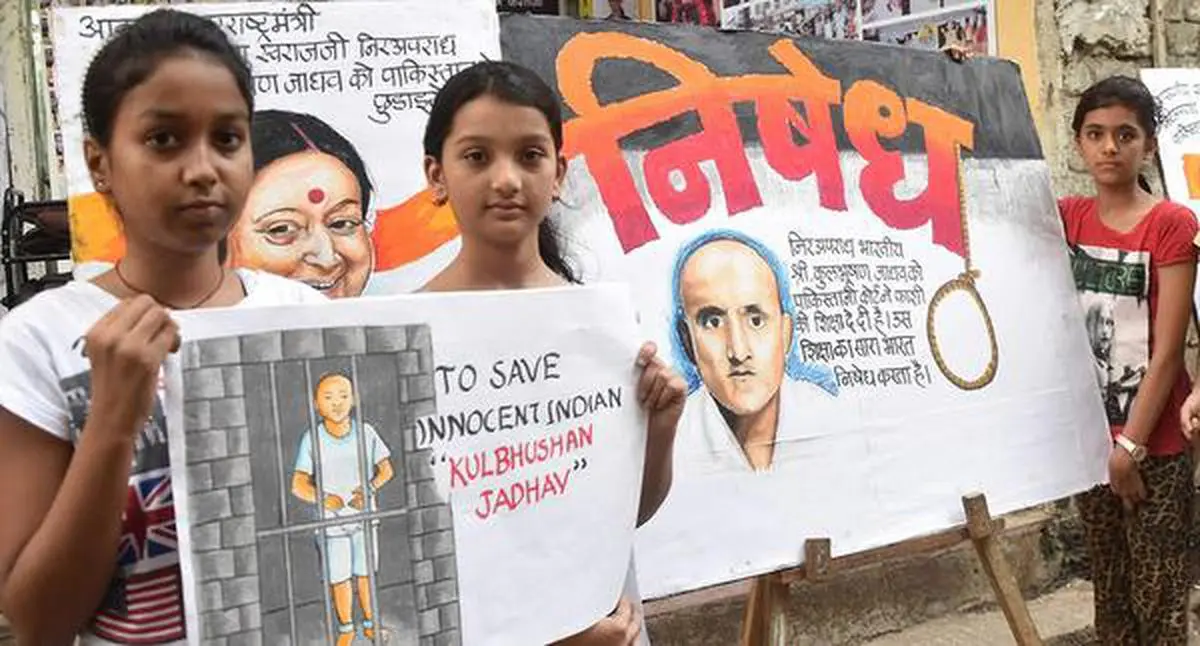 राष्ट्रमंत्री
स्वराजजी निरअपराध
जाधव को पाकिस्तान
निषेध
निरअपराध भारतीय
श्री. कुलभूषण जाधव को
पाकिस्तानी कोर्टने फाशी
की शिक्षा दे दी है। इस
शिक्षा का सारा भारत
निषेध करता है।
TO SAVE
INNOCENT INDIAN
“KULBHUSHAN
JADHAV”